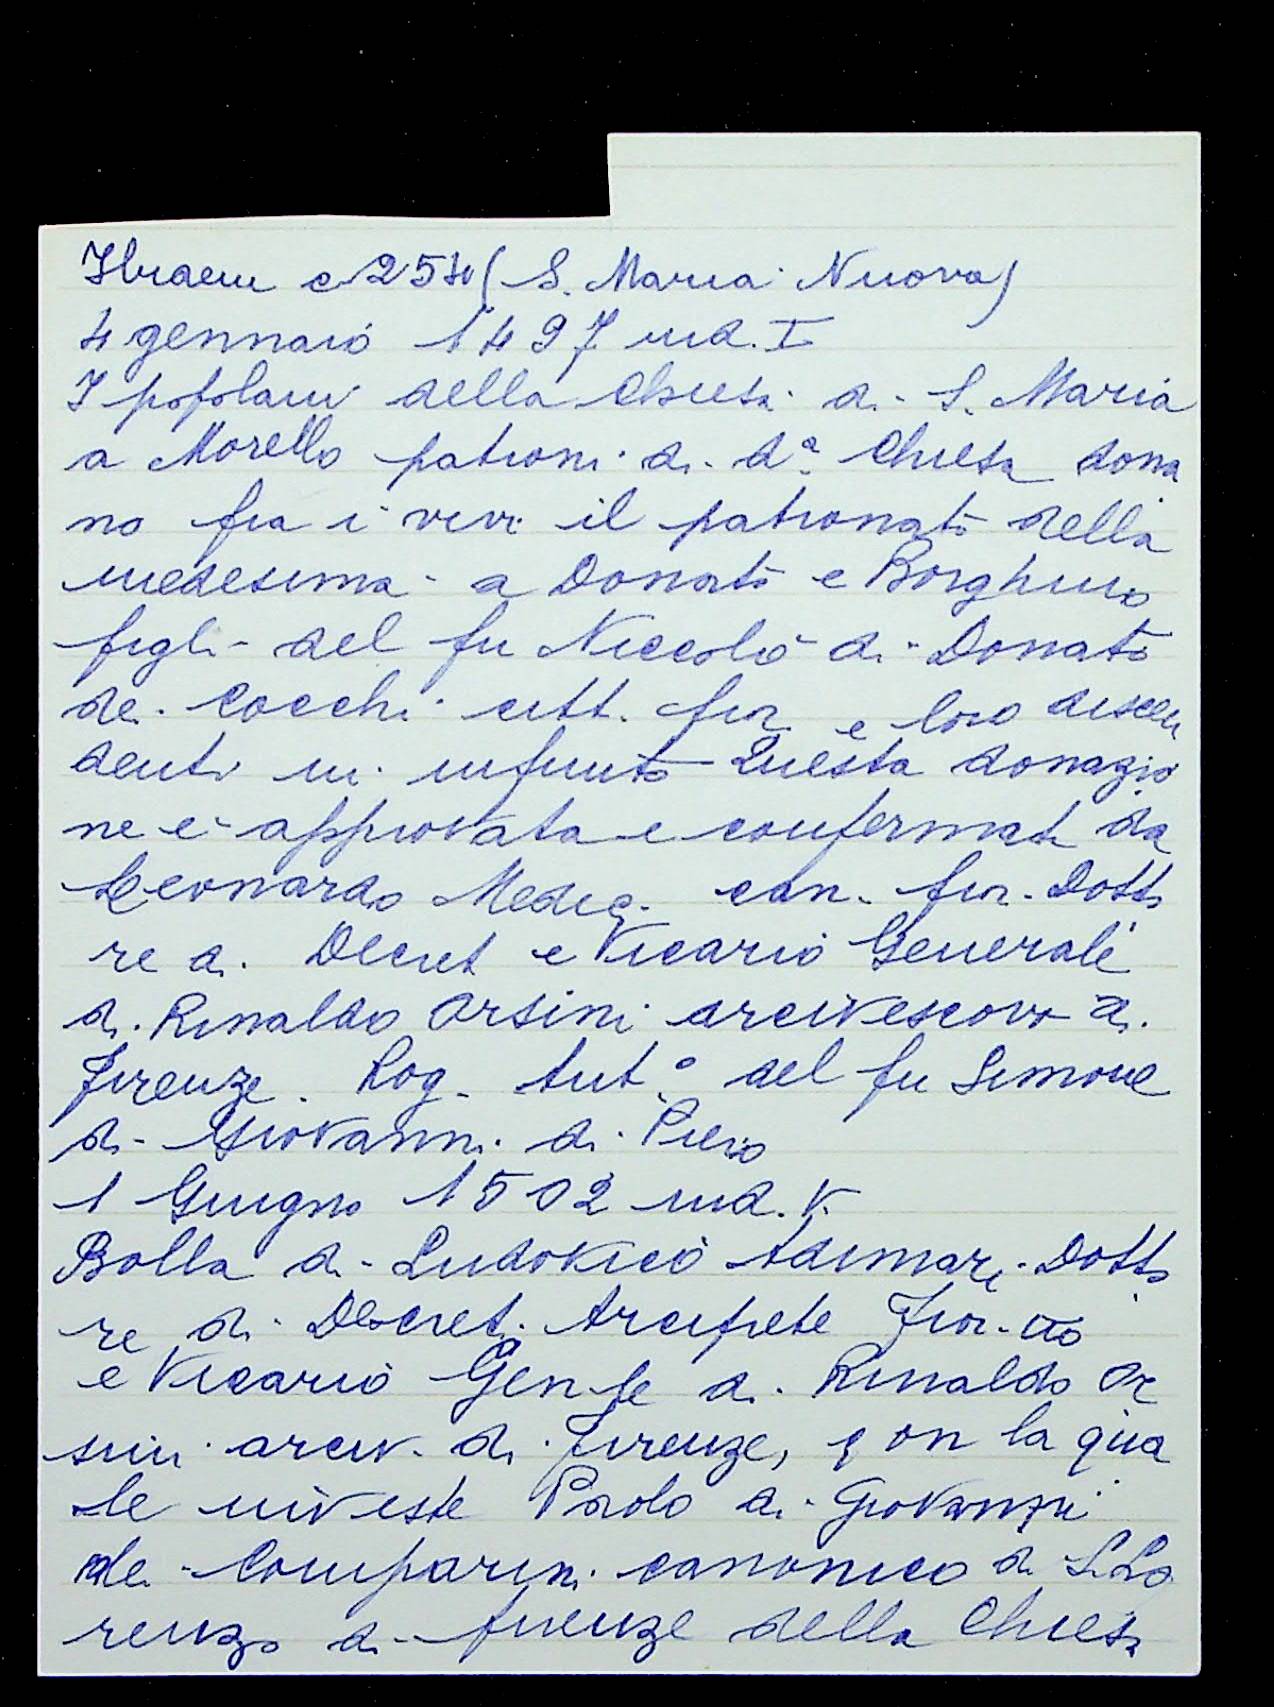 Ibidem c 254 (S. Maria Nuova)
4 gennaio 1497 ind. I
I popolani della Chiesa di S. Maria
a Morello patroni di dª Chiesa dona
no fra i vivi il patronato della
medesima a Donato e Borghino
figli del fu Niccolò di Donato
de Cocchi citt. fior. e loro discen
denti in infinito Questa donazio
ne è approvata e confermata da
Leonardo Medici can. fior. Dotto
re di Decret e Vicario Generale
di Rinaldo Orsini arcivescovo di
Firenze. Rog. Antº del fu Simone
di Giovanni di Piero
1 Giugno 1502 ind. V.
Bolla di Ludovico Adimari Dotto
re di Decret. Arciprete Fior.no
e Vicario Gen.le di Rinaldo Or
sini arciv. di Firenze, con la qua
le investe Paolo di Giovanni
de Comparini canonico di S. Lo
renzo di Firenze della Chiesa